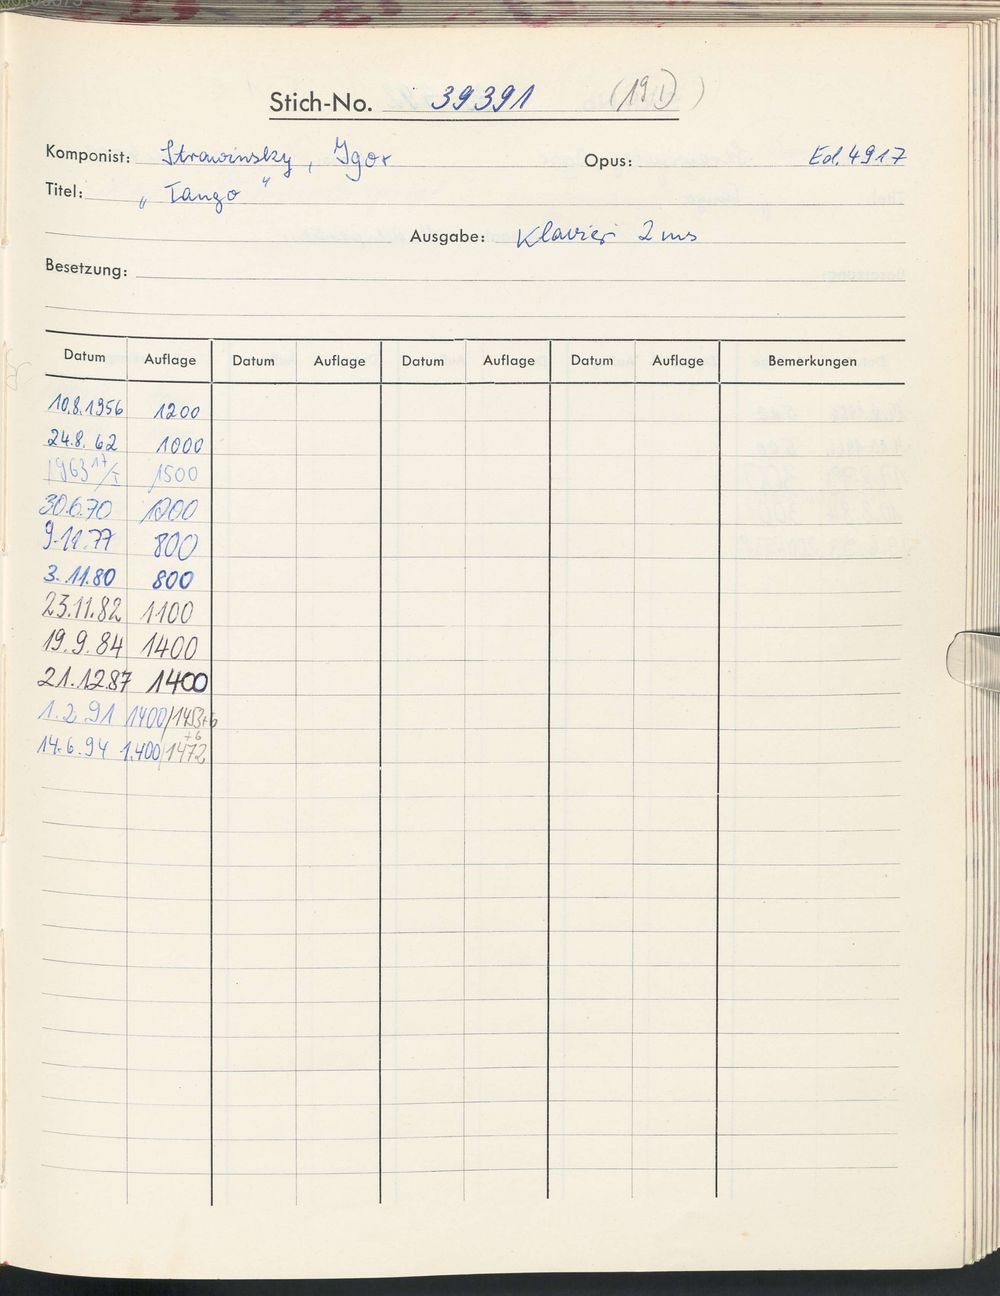 Stich-No. 39391 (19 I)
Komponist: Strawinsky, Igor Opus: Ed. 4917
Titel: „Tango"
Ausgabe: Klavier 2 ms
Besetzung:
Datum Auflage Datum Auflage Datum Auflage Datum Auflage Bemerkungen
10.8.1956 1200
24.8.62 1000
1963 17/I 1500
30.6.70
9.11.77 800
3.11.80 800
23.11.82 1100
19.9.84 1400
21.12.87 1400
1.2.91 1400/1453+6
14.6.94 1.400/1472+6